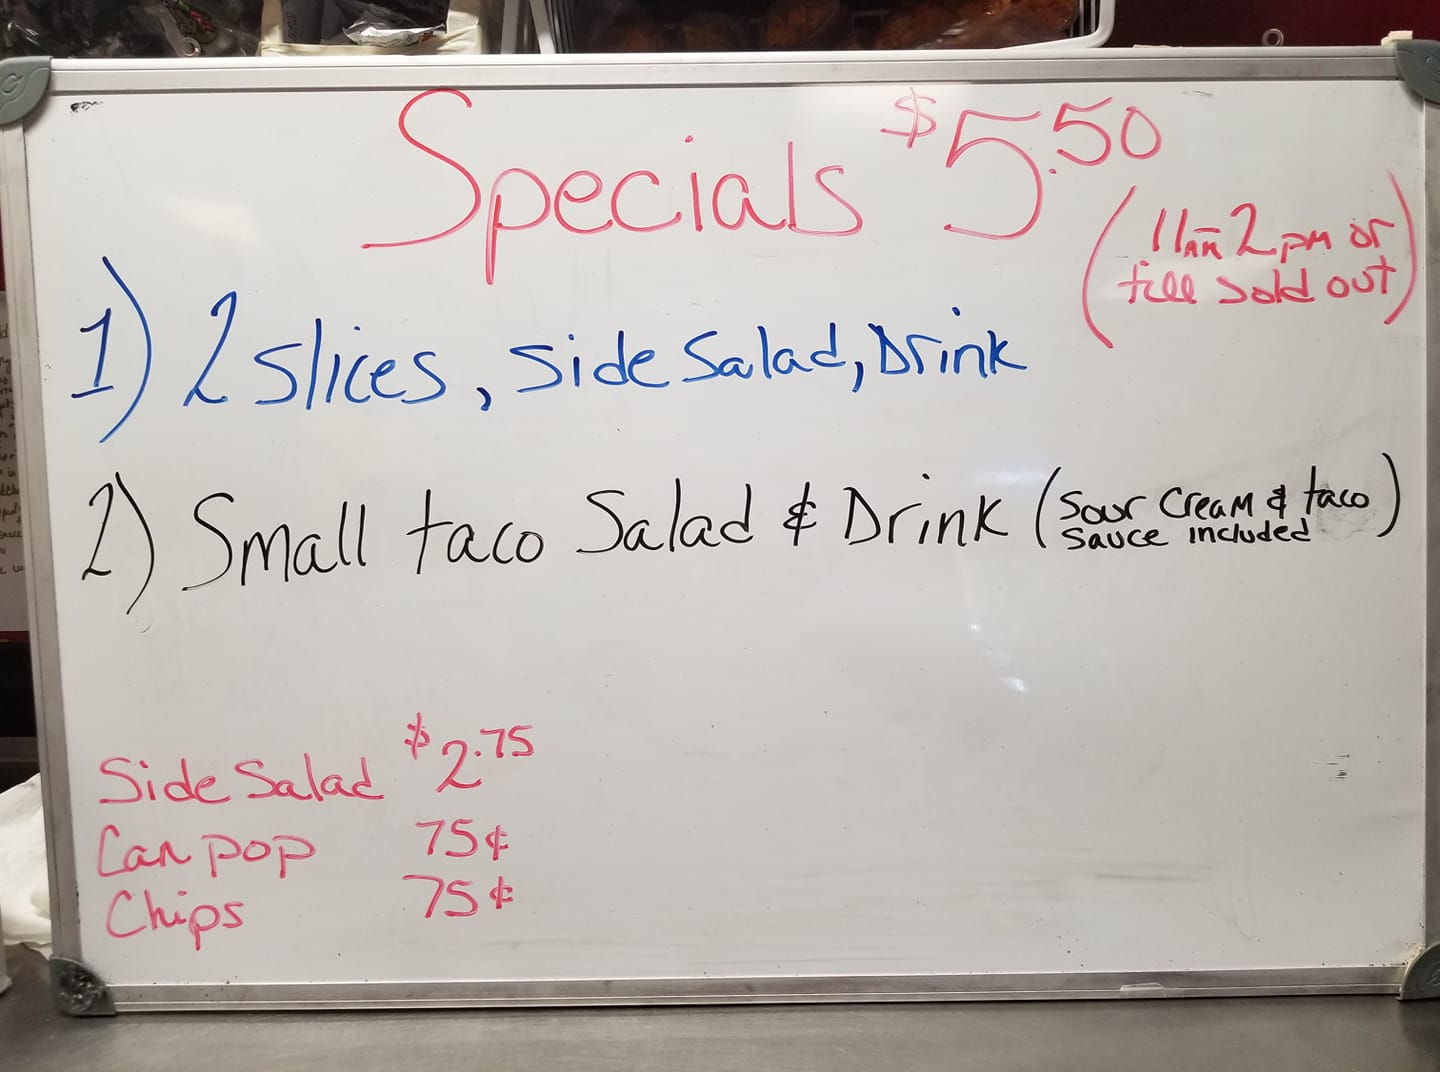 Specials $5.50
(11am-2pm or
till sold out)
1) 2 slices, Side Salad, Drink
2) Small taco Salad & Drink (Sour Cream & taco
Sauce included)
Side Salad $2.75
Can pop 75¢
Chips 75¢